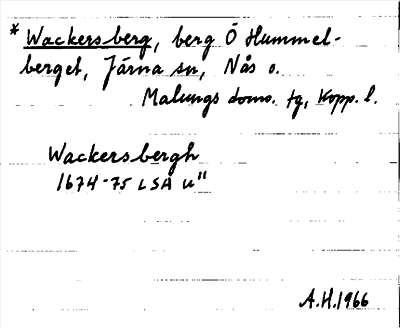 * Wackersberg, berg Ö Hummel-
berget, Järna sn, Nås o.
Malungs doms. tg, Kopp. l.
Wackersbergh
1674-75 LSA u"
A.H.1966